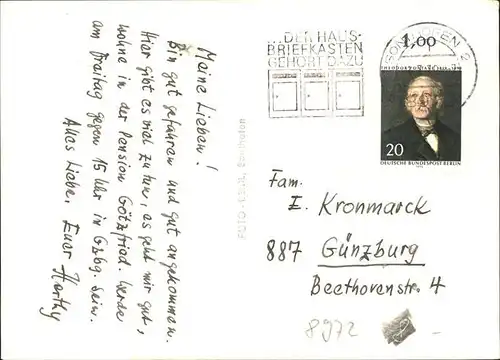 Meine Lieben!
Bin gut gefahren und gut angekommen.
Hier gibt es viel zu tun, es geht mir gut,
wohne in der Pension Götzfried. Werde
am Freitag gegen 15 Uhr in Gzbg. sein.
Alles Liebe, Euer
...DER HAUS-
BRIEFKASTEN
GEHÖRT DAZU
1,00
20
DEUTSCHE BUNDESPOST BERLIN
Fam.
E. Kronmarck
887 Günzburg
Beethovenstr. 4
8972